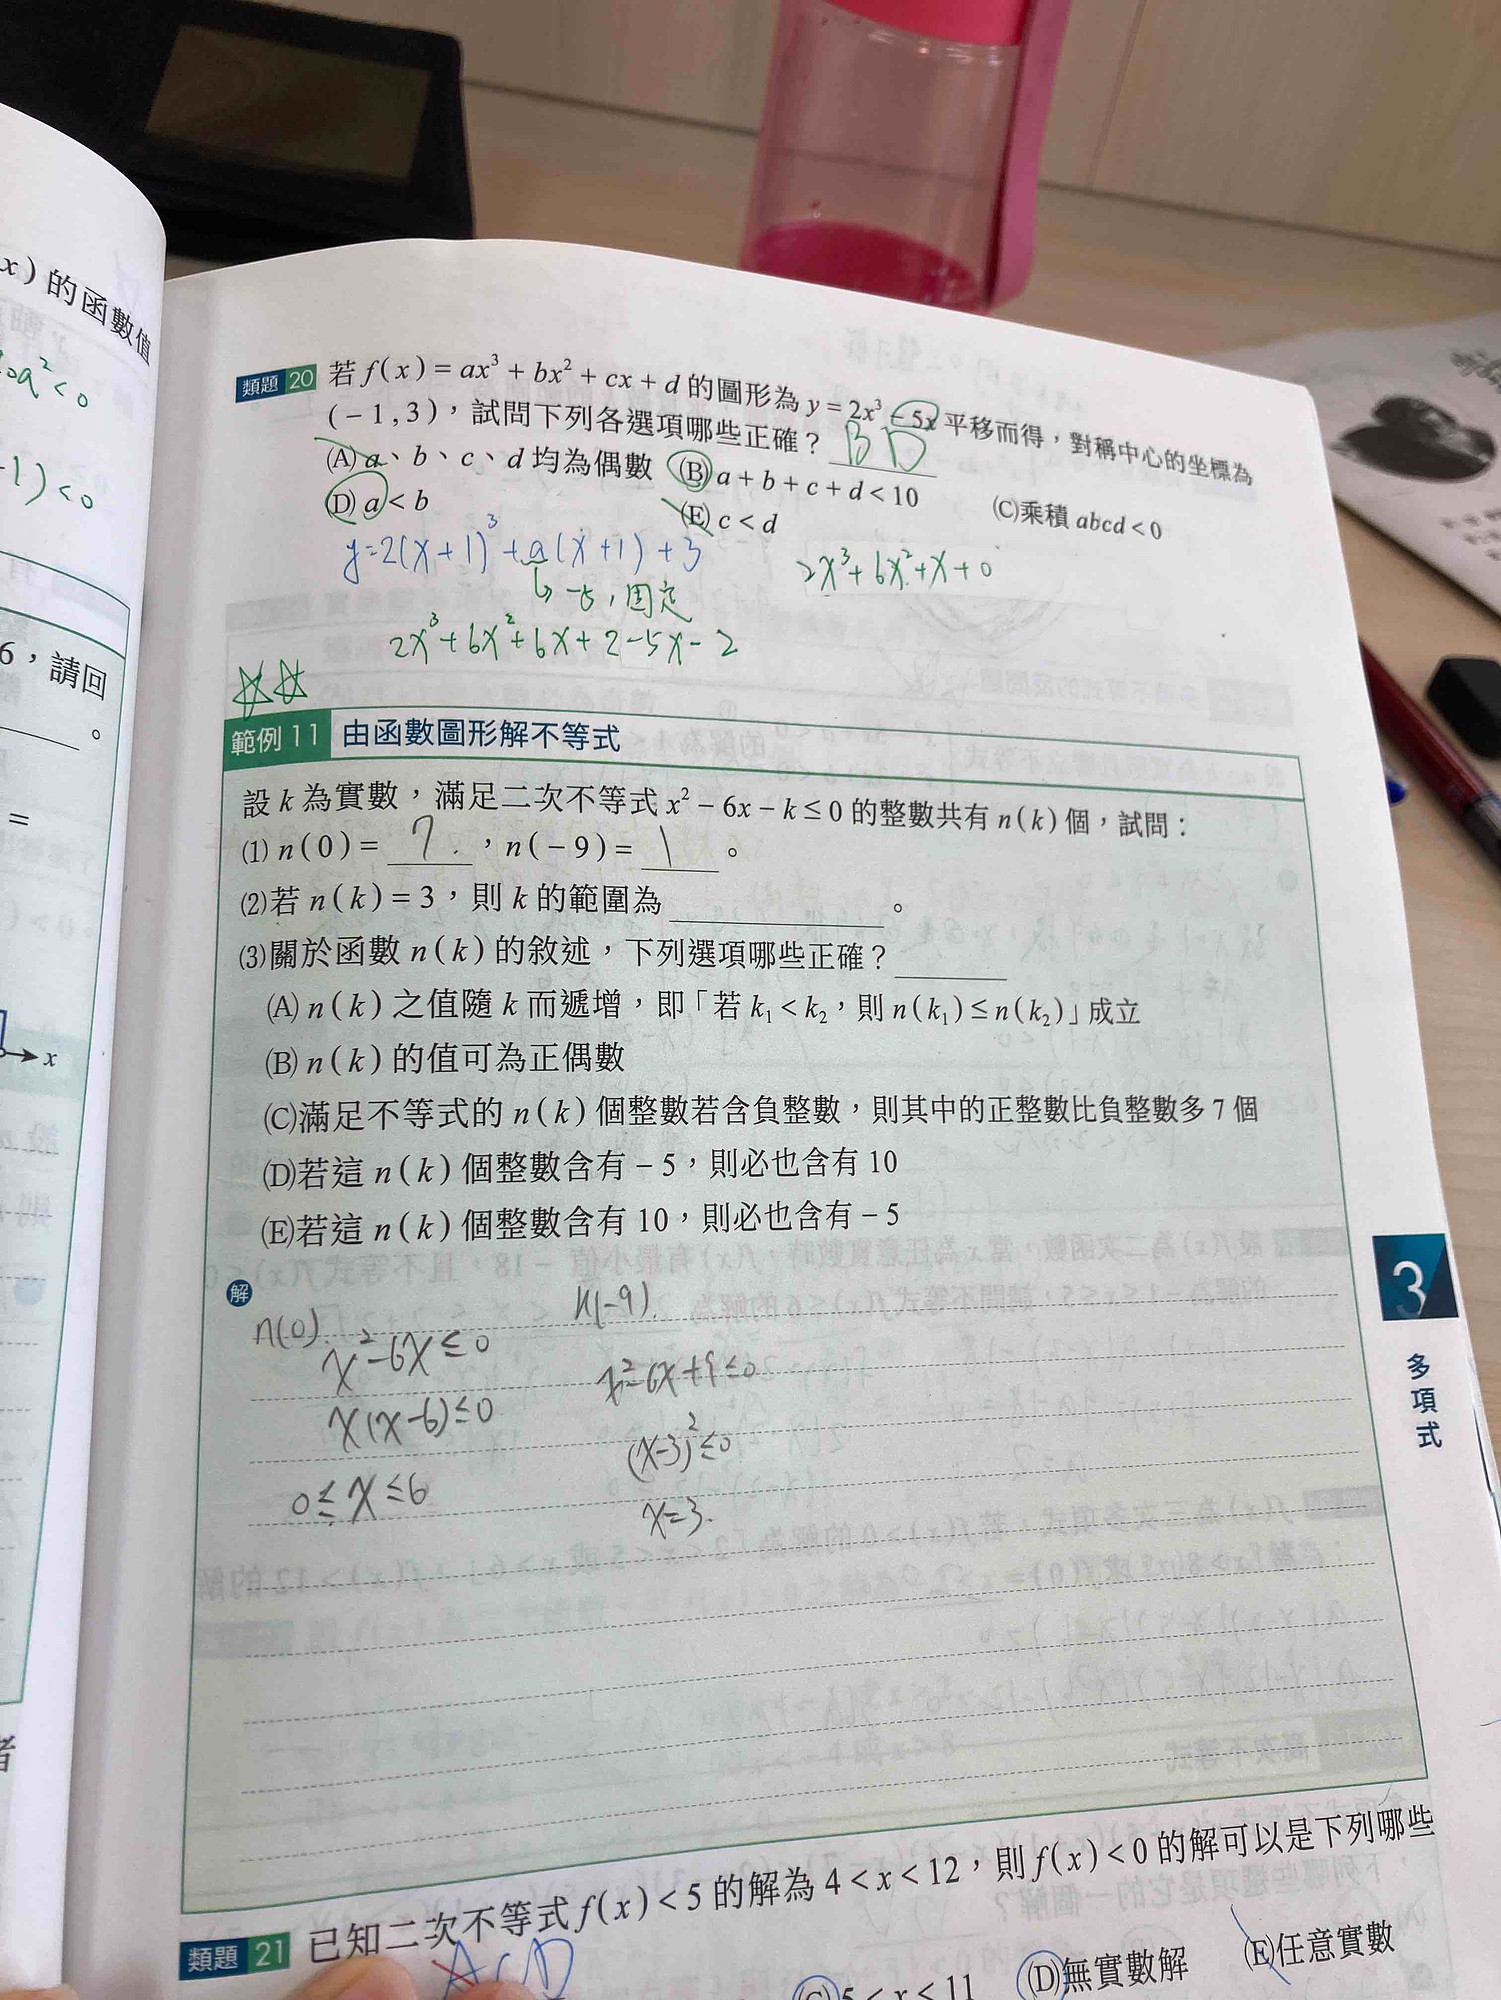 x)的函數值
a²<0
-1)<0
6,請回
。
=
x
類題 20 若 f(x)=ax³+bx²+cx+d 的圖形為 y=2x³-5x 平移而得,對稱中心的坐標為
(-1,3),試問下列各選項哪些正確? BD
(A) a、b、c、d 均為偶數 (B) a+b+c+d<10 (C)乘積 abcd<0
(D) a<b (E) c<d
y=2(x+1)³+a(x+1)+3
↳ -5,固定
2x³+6x²+x+0
2x³+6x²+6x+2-5x-2
☆☆
範例 11 由函數圖形解不等式
設 k 為實數,滿足二次不等式 x²-6x-k≤0 的整數共有 n(k) 個,試問:
(1) n(0)= 7. ,n(-9)= 1 。
(2)若 n(k)=3,則 k 的範圍為 。
(3)關於函數 n(k) 的敘述,下列選項哪些正確?
(A) n(k) 之值隨 k 而遞增,即「若 k₁<k₂,則 n(k₁)≤n(k₂)」成立
(B) n(k) 的值可為正偶數
(C)滿足不等式的 n(k) 個整數若含負整數,則其中的正整數比負整數多 7 個
(D)若這 n(k) 個整數含有 -5,則必也含有 10
(E)若這 n(k) 個整數含有 10,則必也含有 -5
解
n(0). n(-9).
x²-6x≤0 x²-6x+9≤0
x(x-6)≤0 (x-3)²≤0
0≤x≤6 x=3.
3
多項式
類題 21 已知二次不等式 f(x)<5 的解為 4<x<12,則 f(x)<0 的解可以是下列哪些
ACD
(C) 5<x<11 (D)無實數解 (E)任意實數